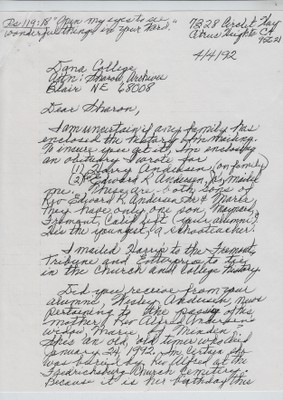 Ps 119:18 "Open my eyes to see
wonderful things in your Word."
7828 Arcola Way
Citrus Heights CA
4/4/92
Dana College
Attn: Sharon,
Blair NE 68008
Dear Sharon,
I am uncertain if any family has
enclosed the history I'm mailing.
To insure you get it, I'm enclosing
an obituary I wrote for
(1) Harry Andersen, (on family)
(2) Edward K. Andersen, Jr. mailed
me. These are both sons of
Rev Edward K. Andersen Sr & Maria
They have only one son,
Fremont, Calif. left (your alumni?)
He's the youngest, a schoolteacher.
I mailed Harry's to the Fremont
Tribune and Enterprise to tie
in the Church and College history
Did you receive from your
alumni, Wesley Andersen, news
pertaining to the passing of his
mother, Rev Alfred Andersen's
widow, Marie of "Minden"
She's an old, old timer who died
January 24, 1992. I'm certain she
was buried by Rev Alfred at the
Fredricksburg Church Cemetery.
Because it is her birthday this